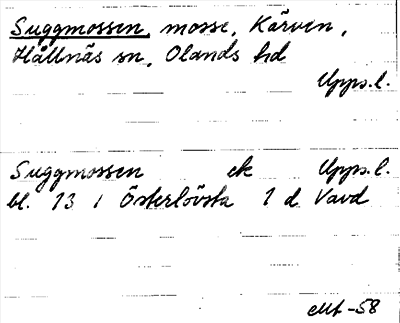 Suggmossen, mosse, Kärven,
Hållnäs sn, Olands hd
Upps.l.
Suggmossen ek Upps.l.
bl. 13 1 Österlövsta 1 d Vavd
-58